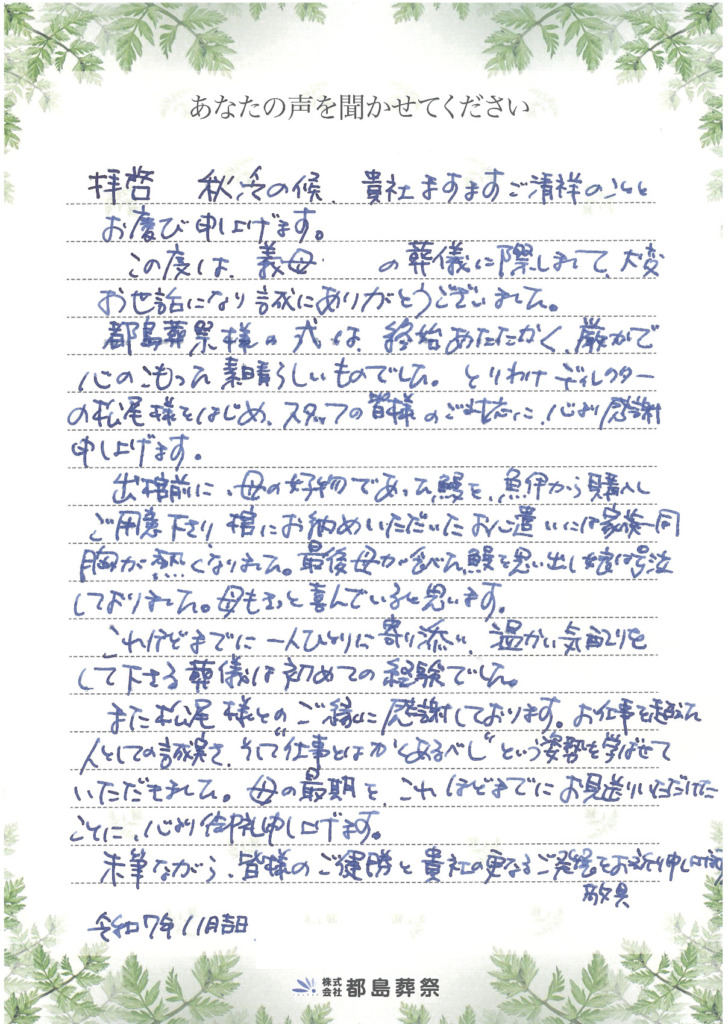 あなたの声を聞かせてください
拝啓　秋冷の候、貴社ますますご清祥のことと
お慶び申し上げます。
この度は、義母　の葬儀に際しまして、大変
お世話になり誠にありがとうございました。
都島葬祭様の式は、終始あたたかく、厳かで
心のこもった素晴らしいものでした。とりわけディレクター
の松尾様をはじめ、スタッフの皆様のご対応に、心より感謝
申し上げます。
出棺前に、母の好物であった鰻を、魚伊から購入し
ご用意下さり、棺にお納めいただいたお心遣いには家族一同
胸が熱くなりました。最後母が食べた鰻を思い出し娘は号泣
しておりました。母もきっと喜んでいると思います。
これほどまでに一人ひとりに寄り添い、温かい気配りを
して下さる葬儀は初めての経験でした。
また松尾様とのご縁に感謝しております。お仕事を超えた
人としての誠実さ、そして"仕事とはかくあるべし"という姿勢を学ばせて
いただきました。母の最期を、これほどまでにお見送りいただけた
ことに、心より御礼申し上げます。
末筆ながら、皆様のご健勝と貴社の更なるご発展をお祈り申し上げ
敬具
令和7年11月吉日
株式会社 都島葬祭